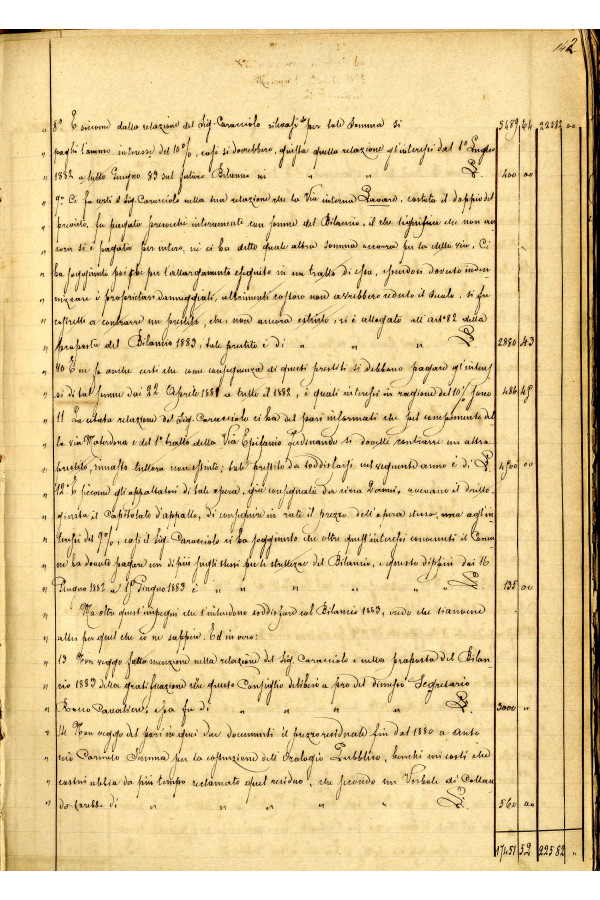 142
8° E siccome dalla relazione del Sig. Caracciolo rilevasi che per tale somma si 5489 64 22582 00
paghi l'annuo interesse del 10%, così si dovrebbero, giusta quella relazione gl'interessi dal 1° Luglio
1882 a tutto Giugno 83 sul futuro Bilancio in " " 400 00
9° Ci fa certi il Sig. Caracciolo nella sua relazione che la Via interna Lavaro, costata il doppio del
previsto, fu pagata precochè interamente con somme del Bilancio, il che significa che non an
cora si è pagata per intero, nè ci ha detto quale altra somma occorra per la detta via. Ci
ha soggiunto poi che per l'allargamento eseguito in un tratto di essa, essendosi dovuto inden
nizzare i proprietari danneggiati, altrimenti costoro non avrebbero ceduto il suolo, si fu
costretti a contrarre un prestito, che, non ancora estinto, si è allegato all'art° 82 della
proposta del Bilancio 1883; tale prestito è di " " 2880 43
10 E ne fa anche certi che come conseguenza di questi prestiti si debbano pagare gl'interes
si di tal somma dai 22 Aprile 1881 a tutto il 1882, e quali interessi in ragione del 10% sono 486 45
11 La citata relazione del Sig. Caracciolo ci ha del pari informati che pel compimento del
la via Matordona e del 1° tratto della Via Epifanio Ferdinando si dovette contrarre un altro
prestito, rimasto tuttora non estinto; tale prestito da soddisfarsi nel vegnente anno è di 4500 00
12° E siccome gli appaltatori di tale opera, già consegnata da circa 2 anni, avevano il diritto,
giusta il Capitolato d'appalto, di conseguire in rate il prezzo dell'opera stessa, ma agl'in
teressi del 9%, così il Sig. Caracciolo ci ha soggiunto che oltre quest'interessi convenuti il Comu
ne ha dovuto pagare un di più sugli stessi per le strettezze del Bilancio, e questo di più dai 16
Giugno 1882 a 1° Giugno 1883 è " " " " 135 00
Ma oltre quest'impegni che s'intendono soddisfare col Bilancio 1883, credo che siano
altri per quel che io ne sappia. Ed invero:
13 Non veggo fatta menzione nella relazione del Sig. Caracciolo e nella proposta del Bilan
cio 1883 della gratificazione che questo Consiglio deliberò a pro del dimesso Segretario
Rocco Cavaliere, essa fu di " " " 3000 "
14 Non veggo del pari in quei due documenti il prezzo residuale fin dal 1880 a Anto
nio Carmelo Summa per la costruzione dell'Orologio Pubblico, benchè mi costi che
costui abbia da più tempo reclamato quel residuo, che secondo un Verbale di Collau
do sarebbe di " " " " " 560 00
17451 52 22582 "